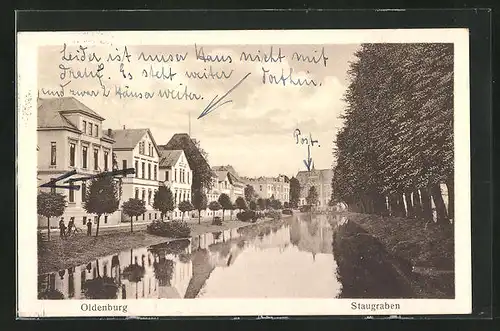 Leider ist unser Haus nicht mit
drauf. Es steht weiter dorthin,
und zwar 2 Häuser weiter.
Post.
Oldenburg
Staugraben